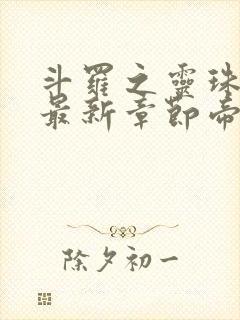 斗羅之靈珠
最新章節帝
除夕初一